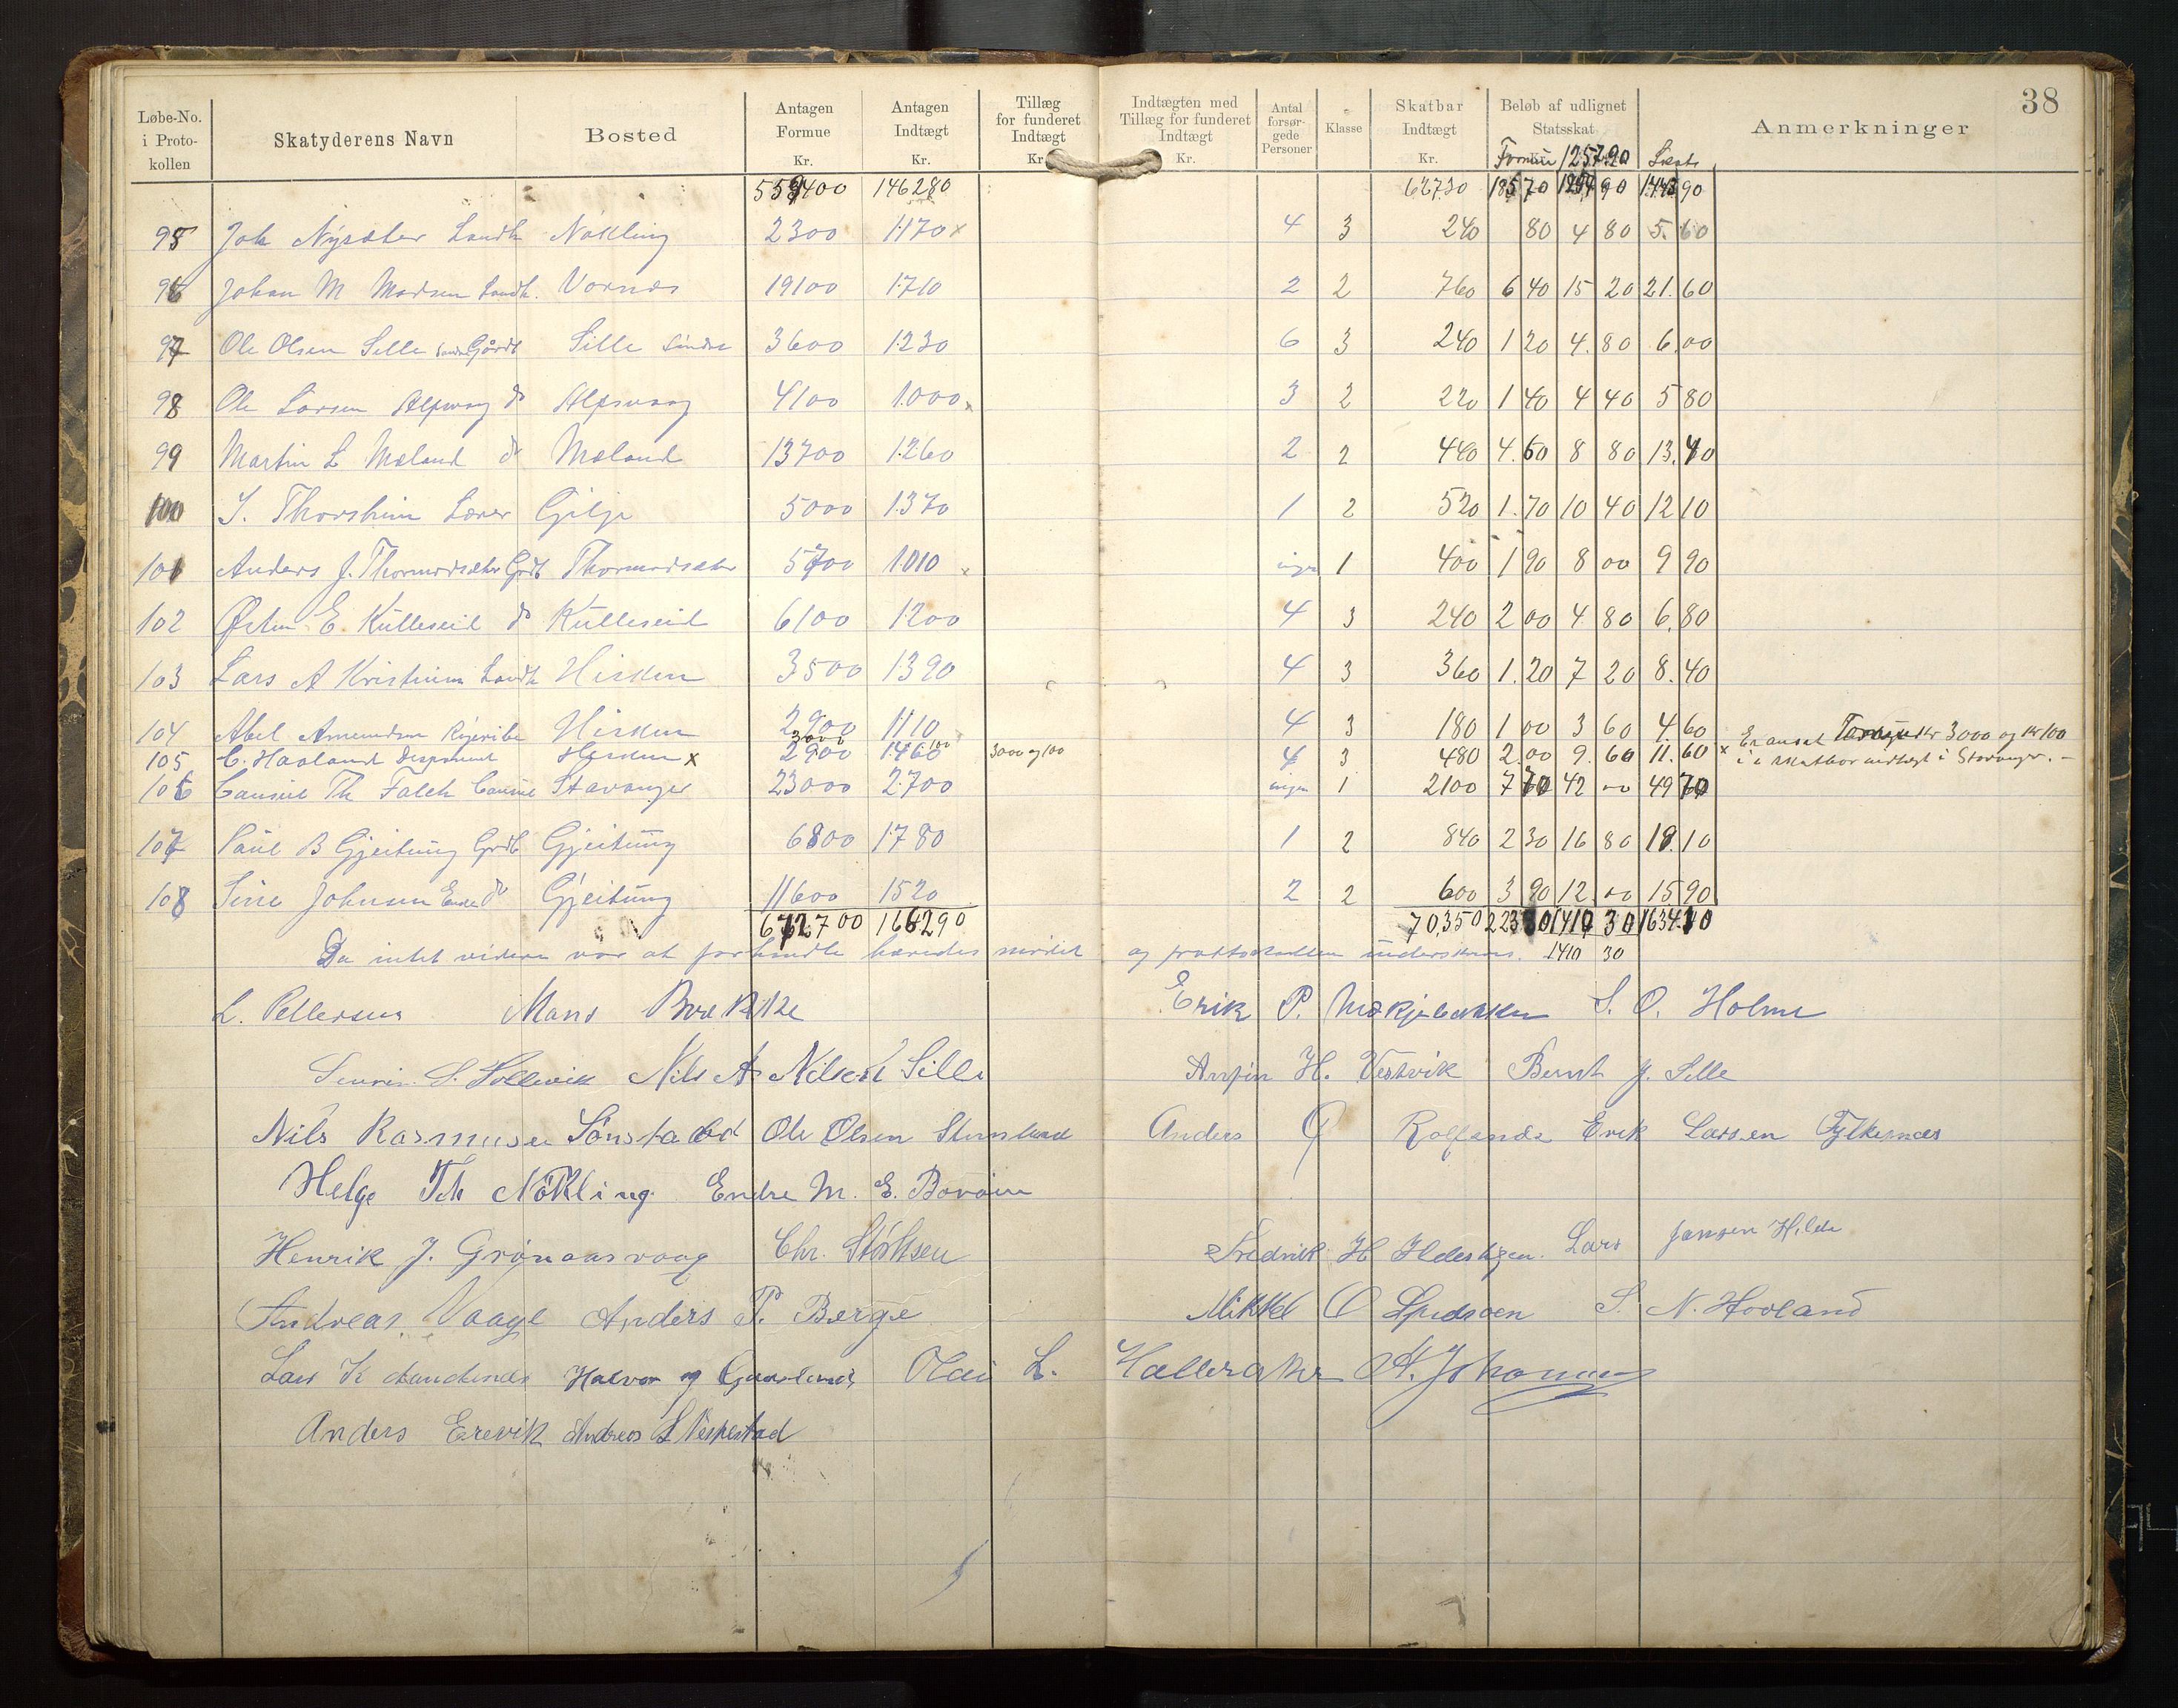 38
Løbe-No. i Protokollen | Skatyderens Navn | Bosted | Antagen Formue Kr. | Antagen Indtægt Kr. | Tillæg for funderet Indtægt Kr. | Indtægten med Tillæg for funderet Indtægt Kr. | Antal forsørgede Personer | Klasse | Skatbar Indtægt Kr. | Beløb af udlignet Statsskat | Anmerkninger
Formue 1257.90 Skat
559400 146280 62730 18570 90 90
95 Joh Nysæter Landh Nøkling 2300 1170 x 4 3 240 80 4 80 5.60
96 Johan M Madsen Landh. Vornes 19100 1710 2 2 760 6 40 15 20 21.60
97 Ole Olsen Sille Gårdb Sille Søndre 3600 1230 6 3 240 1 20 4.80 6.00
98 Ole Larsen Alfsvaag do Alfsvaag 4100 1000 x 3 2 220 1 40 4 40 5 80
99 Martin L Mæland do Mæland 13700 1260 2 2 440 4.60 8 80 13.40
100 Thorsheim Lærer Gilje 5000 1370 1 2 520 1.70 10 40 12 10
101 Anders J. Thormodsæter Grdb Thormodsæter 5700 1010 x ingen 1 400 1 90 8 00 9 90
102 Østen E. Kulleseid do Kulleseid 6100 1200 4 3 240 2 00 4 80 6.80
103 Lars A Landh Hisken 3500 1390 4 3 360 1.20 7 20 8.40
104 Abel Amundsen Hisken 2900 1110 4 3 180 1 00 3 60 4.60
105 C. Haaland Disponent Hisken x 3000 2900 1460 100 3000 og 100 4 3 480 2.00 9.60 11.60 x Er ansat Formue Kr 3000 og Kr 100
i Skatbar indtægt i Stavanger. -
106 Consul Th Falck Consul Stavanger 23000 2700 ingen 1 2100 7 70 42 00 49 70
107 Paul B Gjeitung Grdb Gjeitung 6800 1780 1 2 840 2 30 16 80 19.10
108 Sine Johnsen Enke do Gjeitung 11600 1520 2 2 600 3 90 12.00 15 90
672700 166290 70,350 223 80 1410 30 1634.10
Da intet videre var at forhandle hævedes mødet og protokollen underskrives. 1410 30
L. Pettersen Mans Brekke Erik P. Mækjebakken S. O. Holme
S. Sollevik Nils A Nilsen Sille H. Vestvik Bernt J. Sille
Nils Rasmusen Sønstabø Ole Olsen Stensland Anders Q Rolfsnes Erik Larsen Fylkesnes
Helge Th Nøkling Endre M. E. Børøen
Henrik J. Grønaasvaag Chr. Støltsen Fredrik H Lars Jansen Hilde
Andreas Vaage Anders P. Berge Mikkel O S. N. Hovland
Lars K Halvor Olai L. Halleraker A. Johannesen
Anders Erevik Andreas L Nesestad